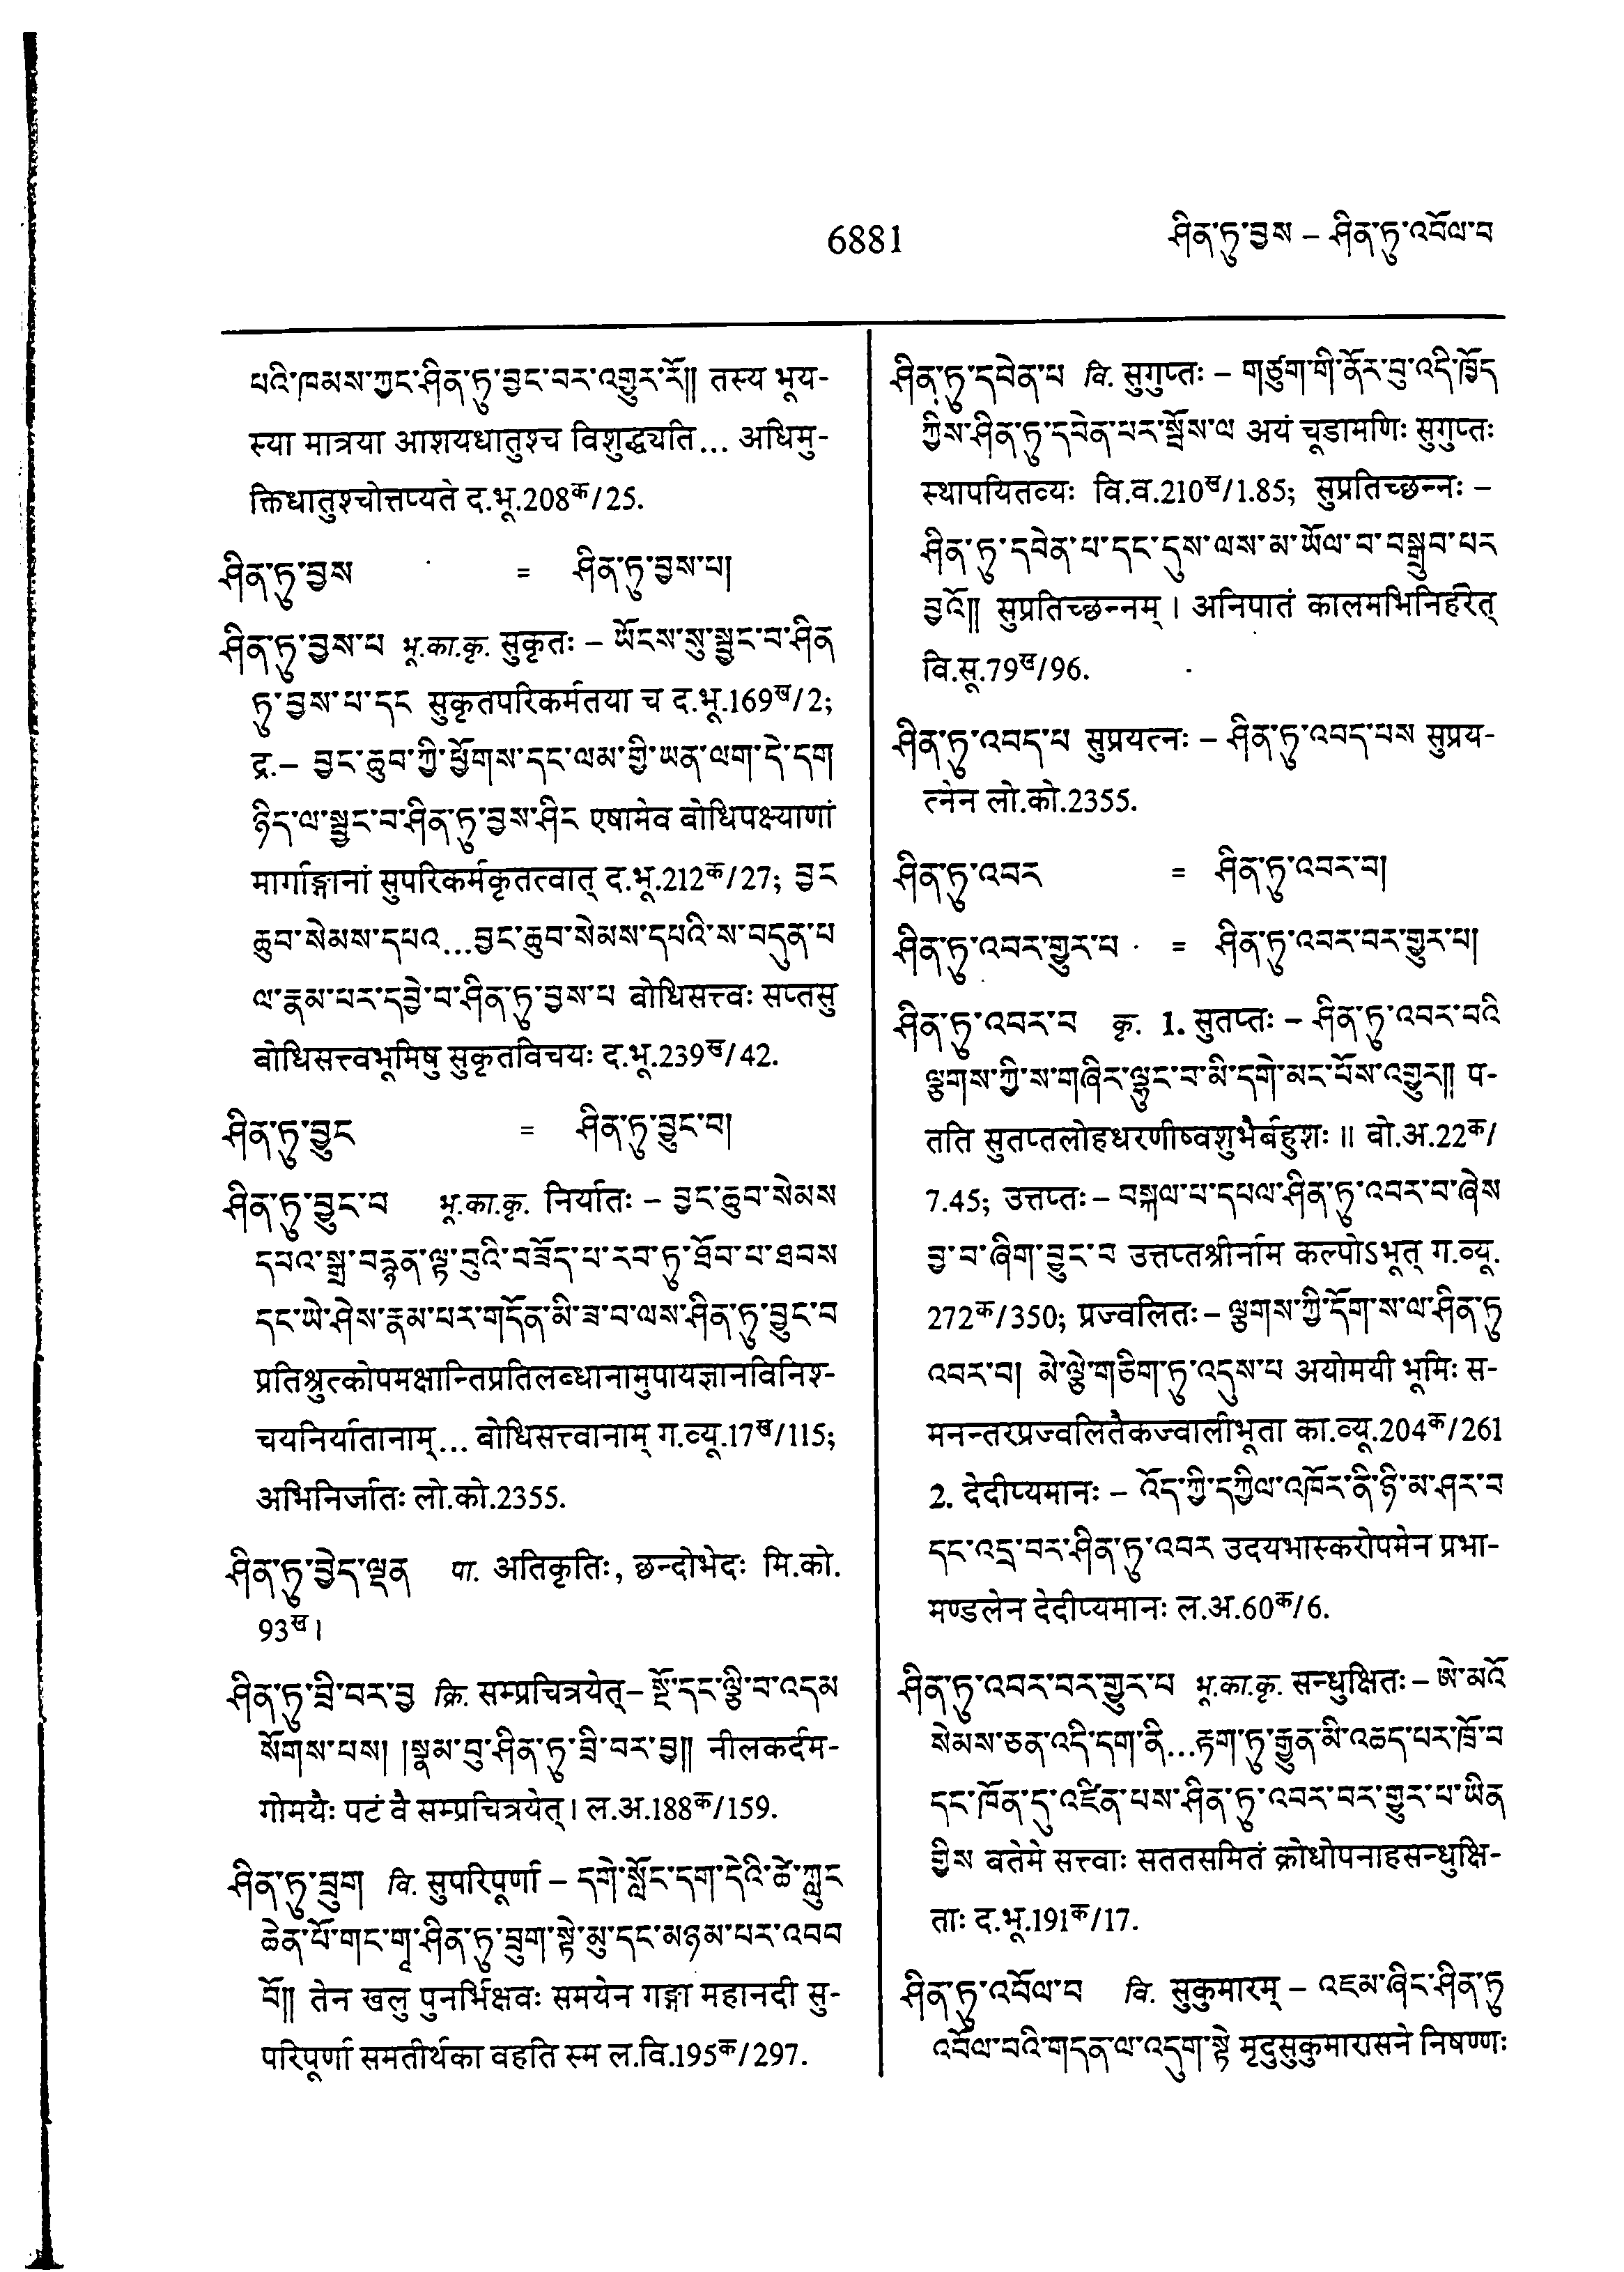 6881
ཤིན་ཏུ་བྱས – ཤིན་ཏུ་འབོལ་བ
པའི་ཁམས་ཀྱང་ཤིན་ཏུ་བྱང་བར་འགྱུར་རོ།། तस्य भूय-
स्या मात्रया आशयधातुश्च विशुद्ध्यति... अधिमु-
क्तिधातुश्चोत्तप्यते द.भू.208क/25.
ཤིན་ཏུ་བྱས = ཤིན་ཏུ་བྱས་པ།
ཤིན་ཏུ་བྱས་པ भू.का.कृ. सुकृतः – ཡོངས་སུ་སྦྱང་བ་ཤིན
ཏུ་བྱས་པ་དང सुकृतपरिकर्मतया च द.भू.169ख/2;
द्र.– བྱང་ཆུབ་ཀྱི་ཕྱོགས་དང་ལམ་གྱི་ཡན་ལག་དེ་དག
ཉིད་ལ་སྦྱང་བ་ཤིན་ཏུ་བྱས་ཤིང एषामेव बोधिपक्ष्याणां
मार्गाङ्गानां सुपरिकर्मकृतत्वात् द.भू.212क/27; བྱང
ཆུབ་སེམས་དཔའ...བྱང་ཆུབ་སེམས་དཔའི་ས་བདུན་པ
ལ་རྣམ་པར་དབྱེ་བ་ཤིན་ཏུ་བྱས་པ बोधिसत्त्वः सप्तसु
बोधिसत्त्वभूमिषु सुकृतविचयः द.भू.239ख/42.
ཤིན་ཏུ་བྱུང = ཤིན་ཏུ་བྱུང་བ།
ཤིན་ཏུ་བྱུང་བ भू.का.कृ. निर्यातः – བྱང་ཆུབ་སེམས
དཔའ་སྒྲ་བརྙན་ལྟ་བུའི་བཟོད་པ་རབ་ཏུ་ཐོབ་པ་ཐབས
དང་ཡེ་ཤེས་རྣམ་པར་གདོན་མི་ཟ་བ་ལས་ཤིན་ཏུ་བྱུང་བ
प्रतिश्रुत्कोपमक्षान्तिप्रतिलब्धानामुपायज्ञानविनिश-
चयनिर्यातानाम्... बोधिसत्त्वानाम् ग.व्यू.17ख/115;
अभिनिर्जातः लो.को.2355.
ཤིན་ཏུ་བྱེད་ལྡན पा. अतिकृतिः, छन्दोभेदः मि.को.
93ख।
ཤིན་ཏུ་བྲི་བར་བྱ क्रि. सम्प्रचित्रयेत्– སྔོ་དང་ལྕི་བ་འདམ
སོགས་པས། །སྣམ་བུ་ཤིན་ཏུ་བྲི་བར་བྱ།། नीलकर्दम-
गोमयैः पटं वै सम्प्रचित्रयेत्। ल.अ.188क/159.
ཤིན་ཏུ་བྲུག वि. सुपरिपूर्णा – དགེ་སློང་དག་དེའི་ཚེ་ཀླུང
ཆེན་པོ་གང་གཱ་ཤིན་ཏུ་བྲུག་སྟེ་མུ་དང་མཉམ་པར་འབབ
བོ།། तेन खलु पुनर्भिक्षवः समयेन गङ्गा महानदी सु-
परिपूर्णा समतीर्थका वहति स्म ल.वि.195क/297.
ཤིན་ཏུ་དབེན་པ वि. सुगुप्तः – གཙུག་གི་ནོར་བུ་འདི་ཁྱོད
ཀྱིས་ཤིན་ཏུ་དབེན་པར་སྦོས་ལ अयं चूडामणिः सुगुप्तः
स्थापयितव्यः वि.व.210ख/1.85; सुप्रतिच्छन्नः –
ཤིན་ཏུ་དབེན་པ་དང་དུས་ལས་མ་ཡོལ་བ་བསྒྲུབ་པར
བྱའོ།། सुप्रतिच्छन्नम्। अनिपातं कालमभिनिर्हरेत्
वि.सू.79ख/96.
ཤིན་ཏུ་འབད་པ सुप्रयत्नः – ཤིན་ཏུ་འབད་པས सुप्रय-
त्नेन लो.को.2355.
ཤིན་ཏུ་འབར = ཤིན་ཏུ་འབར་བ།
ཤིན་ཏུ་འབར་གྱུར་པ = ཤིན་ཏུ་འབར་བར་གྱུར་པ།
ཤིན་ཏུ་འབར་བ कृ. 1. सुतप्तः – ཤིན་ཏུ་འབར་བའི
ལྕགས་ཀྱི་ས་གཞིར་ལྷུང་བ་མི་དགེ་མང་པོས་འགྱུར།། प-
तति सुतप्तलोहधरणीष्वशुभैर्बहुशः॥ बो.अ.22क/
7.45; उत्तप्तः – བསྐལ་པ་དཔལ་ཤིན་ཏུ་འབར་བ་ཞེས
བྱ་བ་ཞིག་བྱུང་བ उत्तप्तश्रीर्नाम कल्पोऽभूत् ग.व्यू.
272क/350; प्रज्वलितः – ལྕགས་ཀྱི་དོག་ས་ལ་ཤིན་ཏུ
འབར་བ། མེ་ལྕེ་གཅིག་ཏུ་འདུས་པ अयोमयी भूमिः स-
मनन्तरप्रज्वलितैकज्वालीभूता का.व्यू.204क/261
2. देदीप्यमानः – འོད་ཀྱི་དཀྱིལ་འཁོར་ནི་ཉི་མ་ཤར་བ
དང་འདྲ་བར་ཤིན་ཏུ་འབར उदयभास्करोपमेन प्रभा-
मण्डलेन देदीप्यमानः ल.अ.60क/6.
ཤིན་ཏུ་འབར་བར་གྱུར་པ भू.का.कृ. सन्धुक्षितः – ཨེ་མའོ
སེམས་ཅན་འདི་དག་ནི...རྟག་ཏུ་རྒྱུན་མི་འཆད་པར་ཁྲོ་བ
དང་ཁོན་དུ་འཛིན་པས་ཤིན་ཏུ་འབར་བར་གྱུར་པ་ཡིན
གྱིས बतेमे सत्त्वाः सततसमितं क्रोधोपनाहसन्धुक्षि-
ताः द.भू.191क/17.
ཤིན་ཏུ་འབོལ་བ वि. सुकुमारम् – འཇམ་ཞིང་ཤིན་ཏུ
འབོལ་བའི་གདན་ལ་འདུག་སྟེ मृदुसुकुमारासने निषण्णः